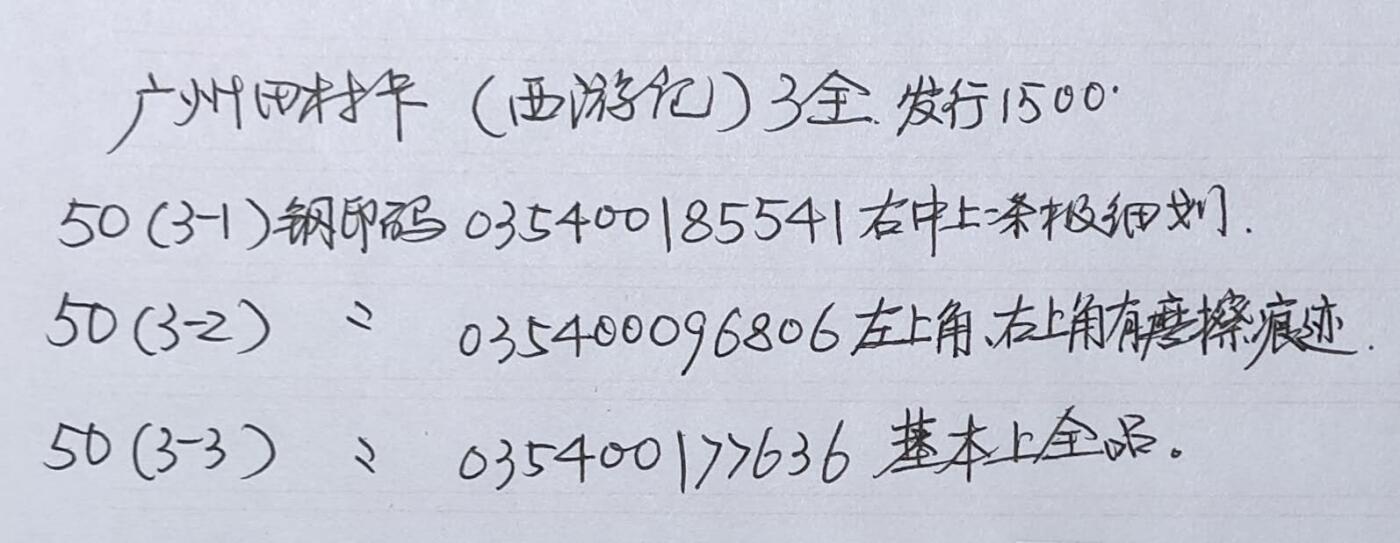 广州田村卡（西游记）3全.发行1500.
50（3-1）钢印码 035400185541右中上一条极细划.
50（3-2） 〃 035400096806左上角、右上角有磨擦痕迹.
50（3-3） 〃 035400177636 基本上全品。